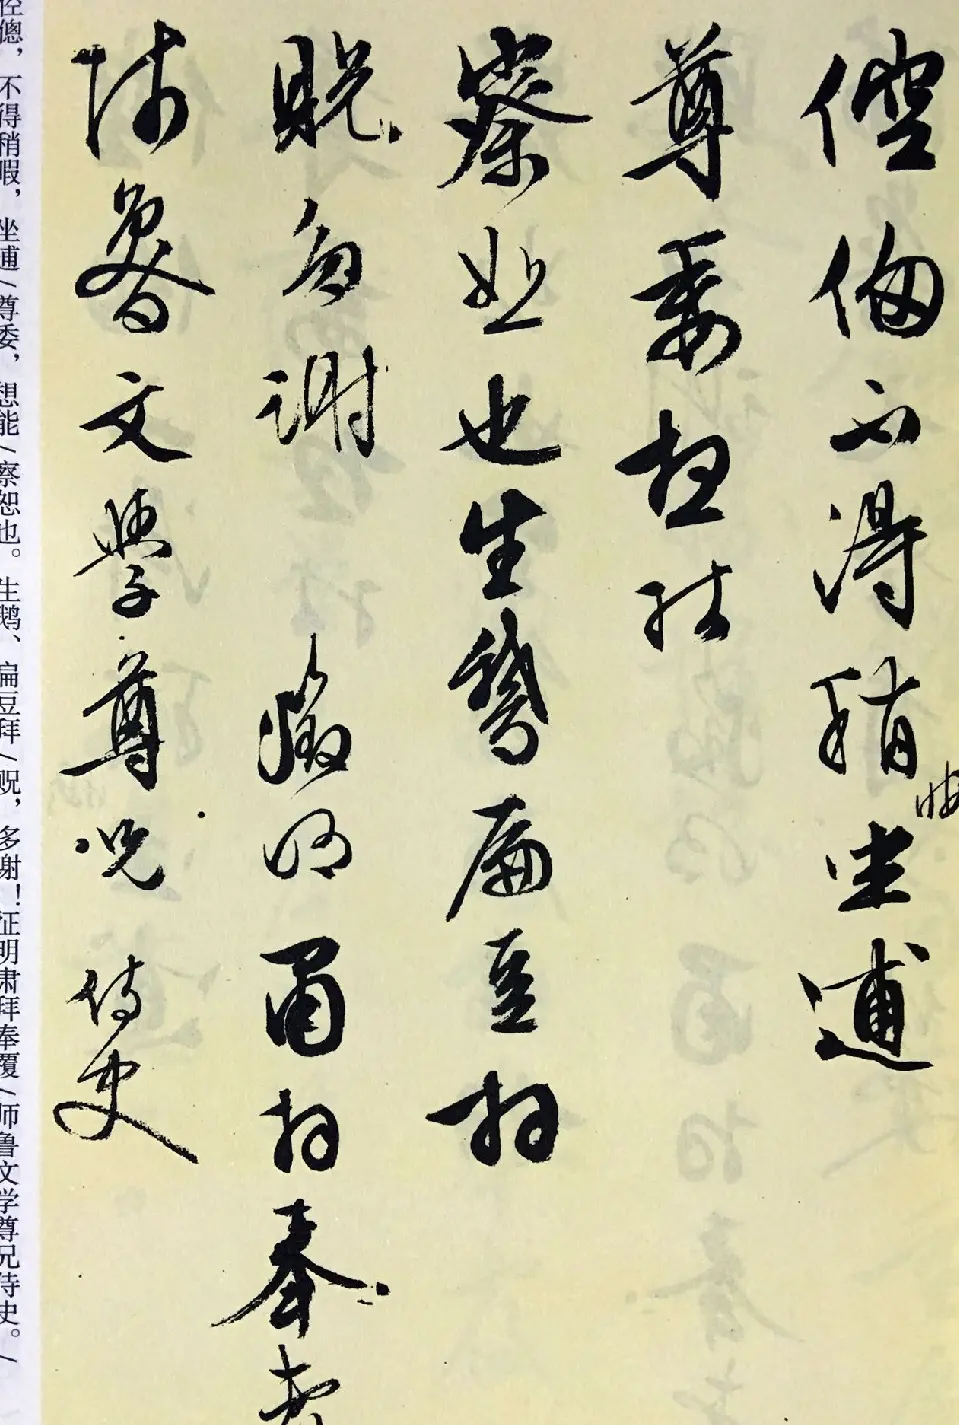 倥傯不得稍暇坐逋
尊委想能
察恕也生鵝扁豆拜
貺多謝徵明肅拜奉
師魯文學尊兄侍史
倥傯，不得稍暇，坐逋（尊委，想能（察恕也。生鹅、扁豆拜（贶，多谢！征明肃拜奉覆（师鲁文学尊兄侍史。（